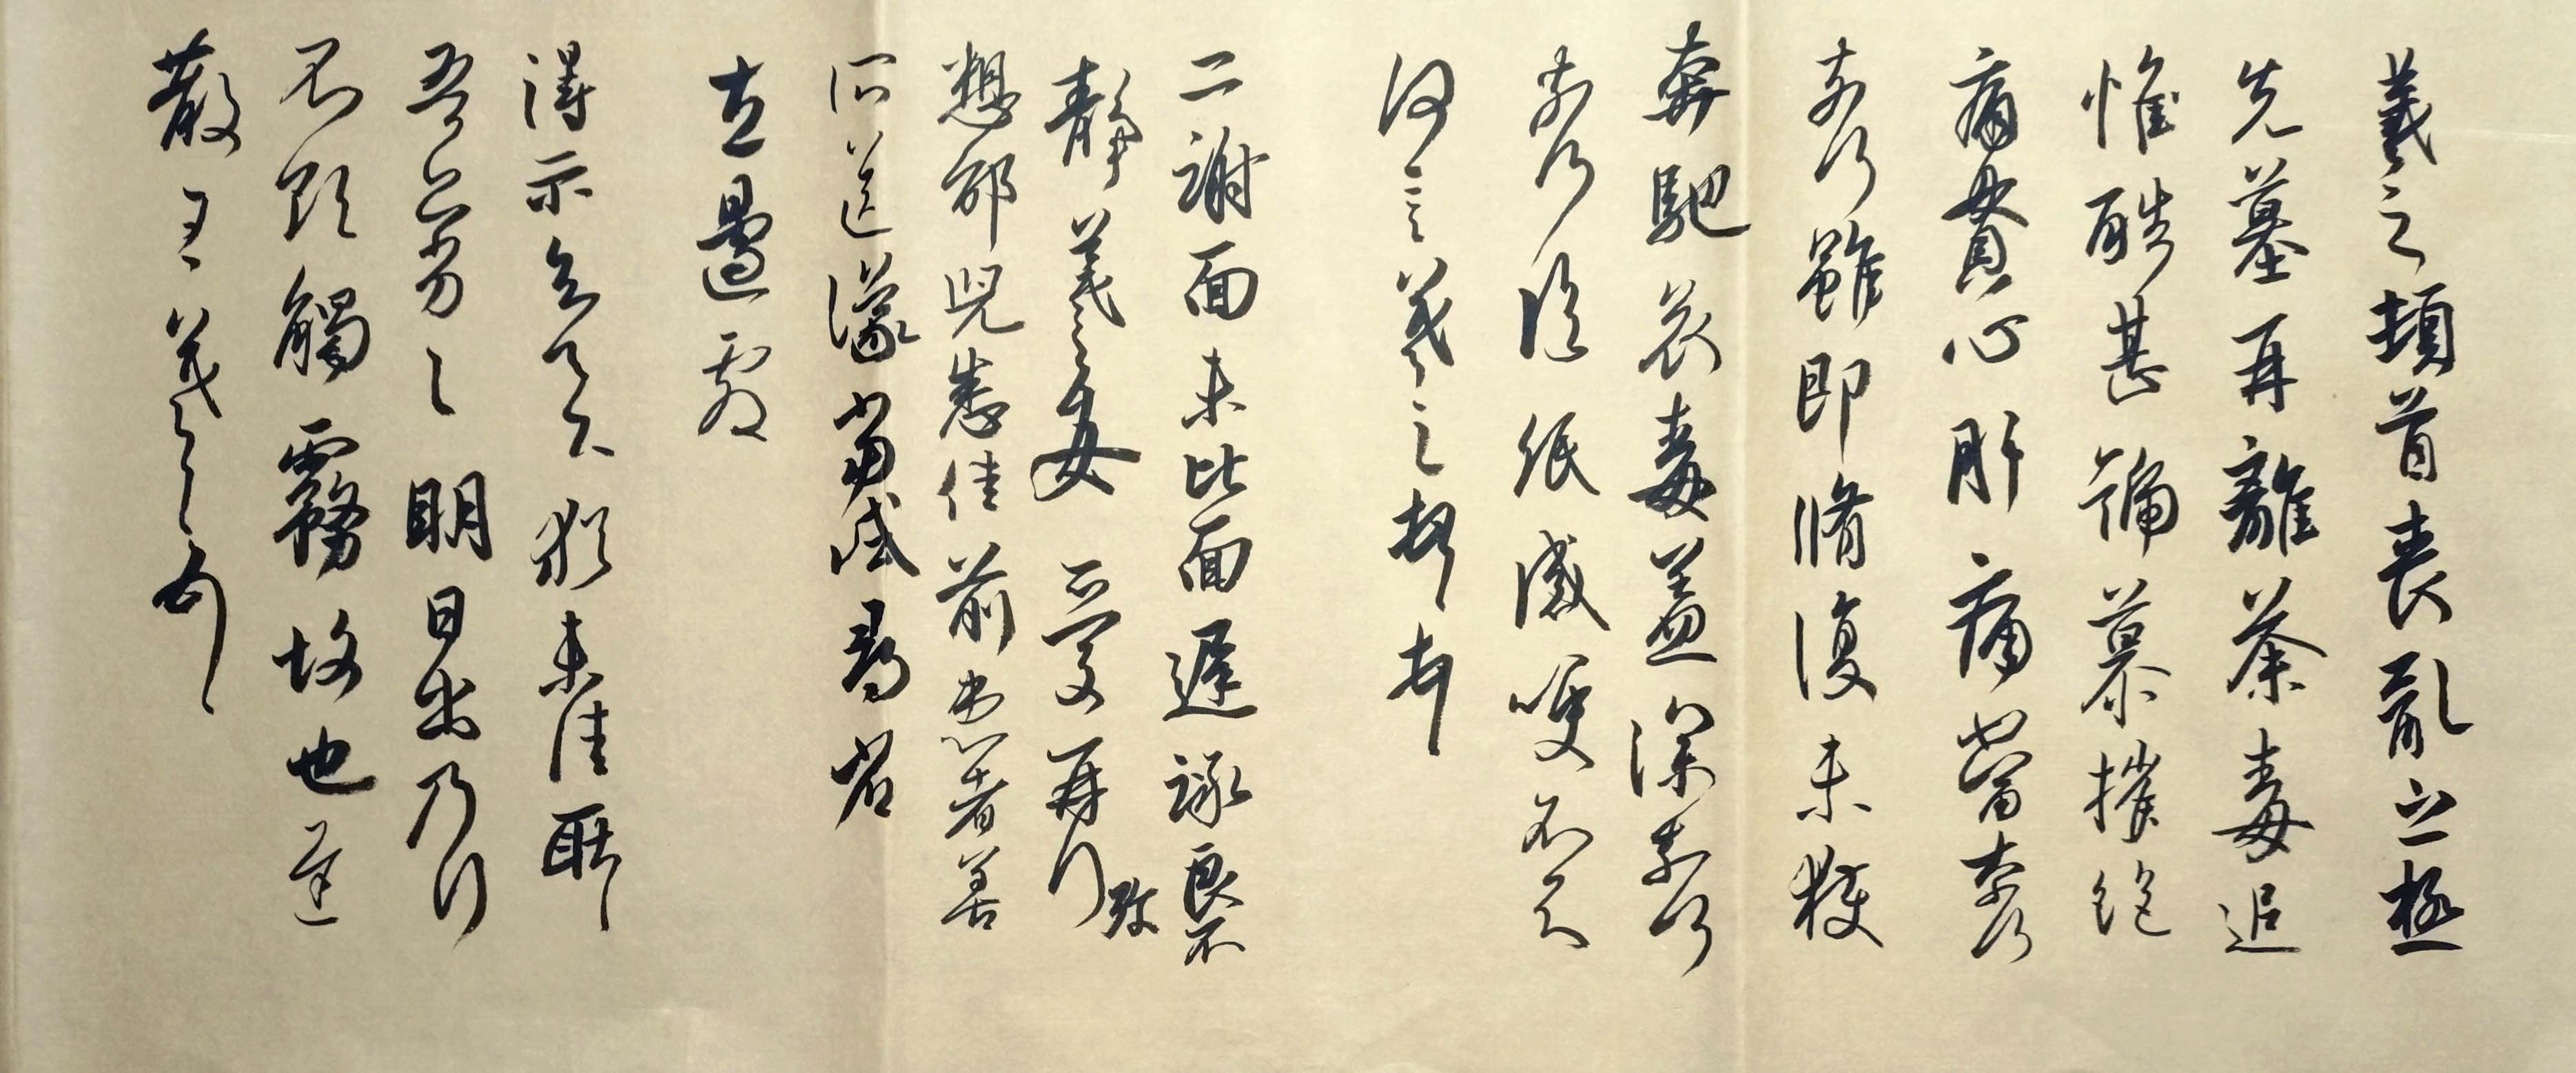 羲之頓首喪亂之極
先墓再離荼毒追
惟酷甚號慕摧絕
痛貫心肝痛當奈何
奈何雖即脩復未獲
奔馳哀毒益深奈何
奈何臨紙感哽不知
何言羲之頓首頓首
二謝面未比面遲詠良不
靜羲之女愛愛再行
想邵兒悉佳前患者善
所送議當試尋省
左邊劇
得示知足下猶未佳耿耿
吾亦劣劣明日出乃行
不欲觸霧故也遲
散王羲之頓首